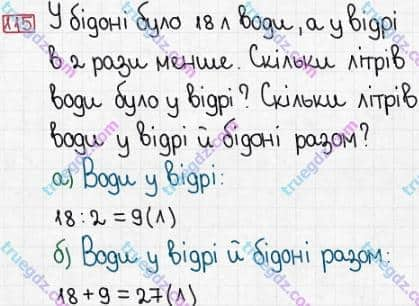 115 У бідоні було 18 л води, а у відрі
в 2 рази менше. Скільки літрів
води було у відрі? Скільки літрів
води у відрі й бідоні разом?
а) Води у відрі:
18 : 2 = 9 (л)
б) Води у відрі й бідоні разом:
18 + 9 = 27 (л)
truegdz.com